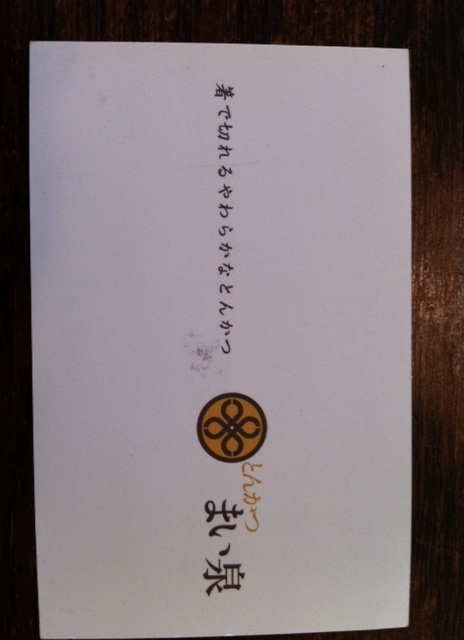 箸で切れるやわらかなとんかつ
とんかつ
まい泉